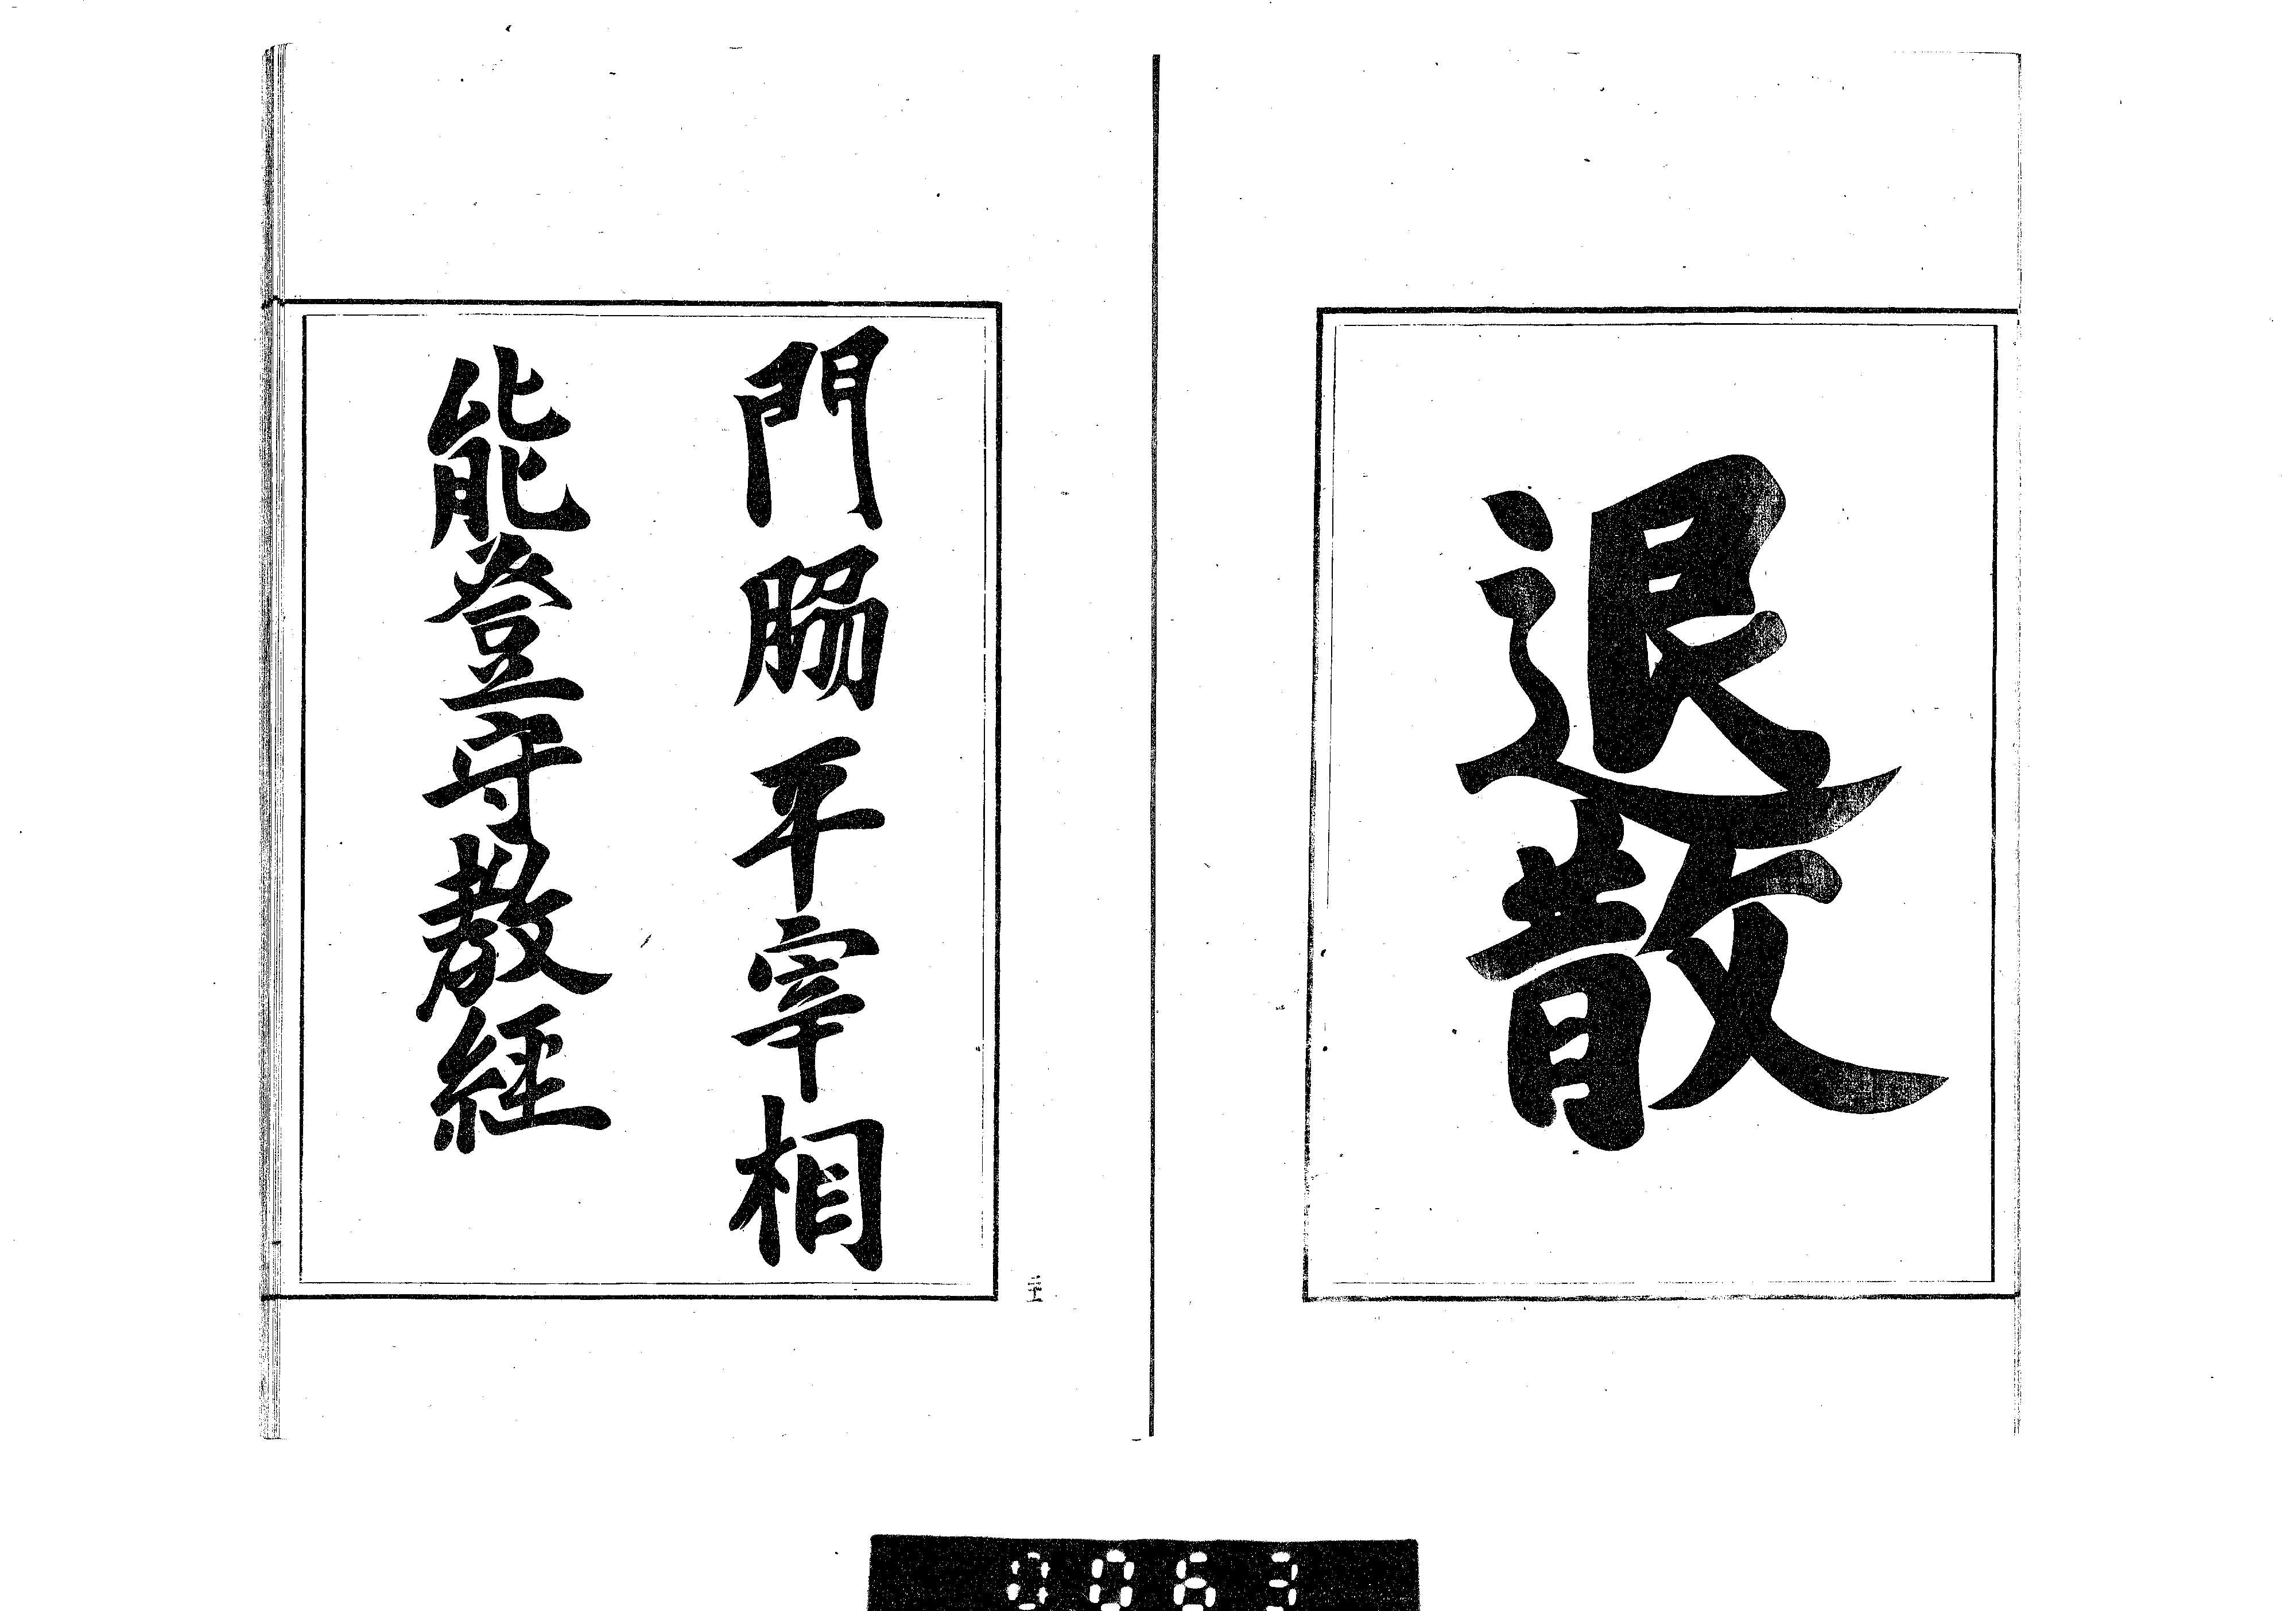 退散
門脇平宰相
能登守教経
0063